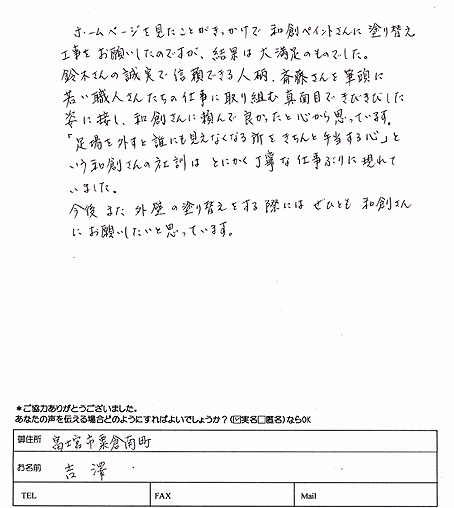 ホームページを見たことがきっかけで 和創ペイントさんに塗り替え
工事をお願いしたのですが、結果は大満足のものでした。
鈴木さんの誠実で信頼できる人柄、斎藤さんを筆頭に
若い職人さんたちの仕事に取り組む真面目できびきびした
姿に接し、和創さんに頼んで良かったと心から思っています。
「足場を外すと誰にも見えなくなる所をきちんと手当する心」と
いう和創さんの社訓は とにかく丁寧な仕事ぶりに現れて
いました。
今後また外壁の塗り替えをする際には ぜひとも 和創さん
にお願いしたいと思っています。
＊ご協力ありがとうございました。
あなたの声を伝える場合どのようにすればよいでしょうか？(☑実名□匿名)ならOK
御住所 富士宮市粟倉南町
お名前 吉澤
TEL FAX Mail